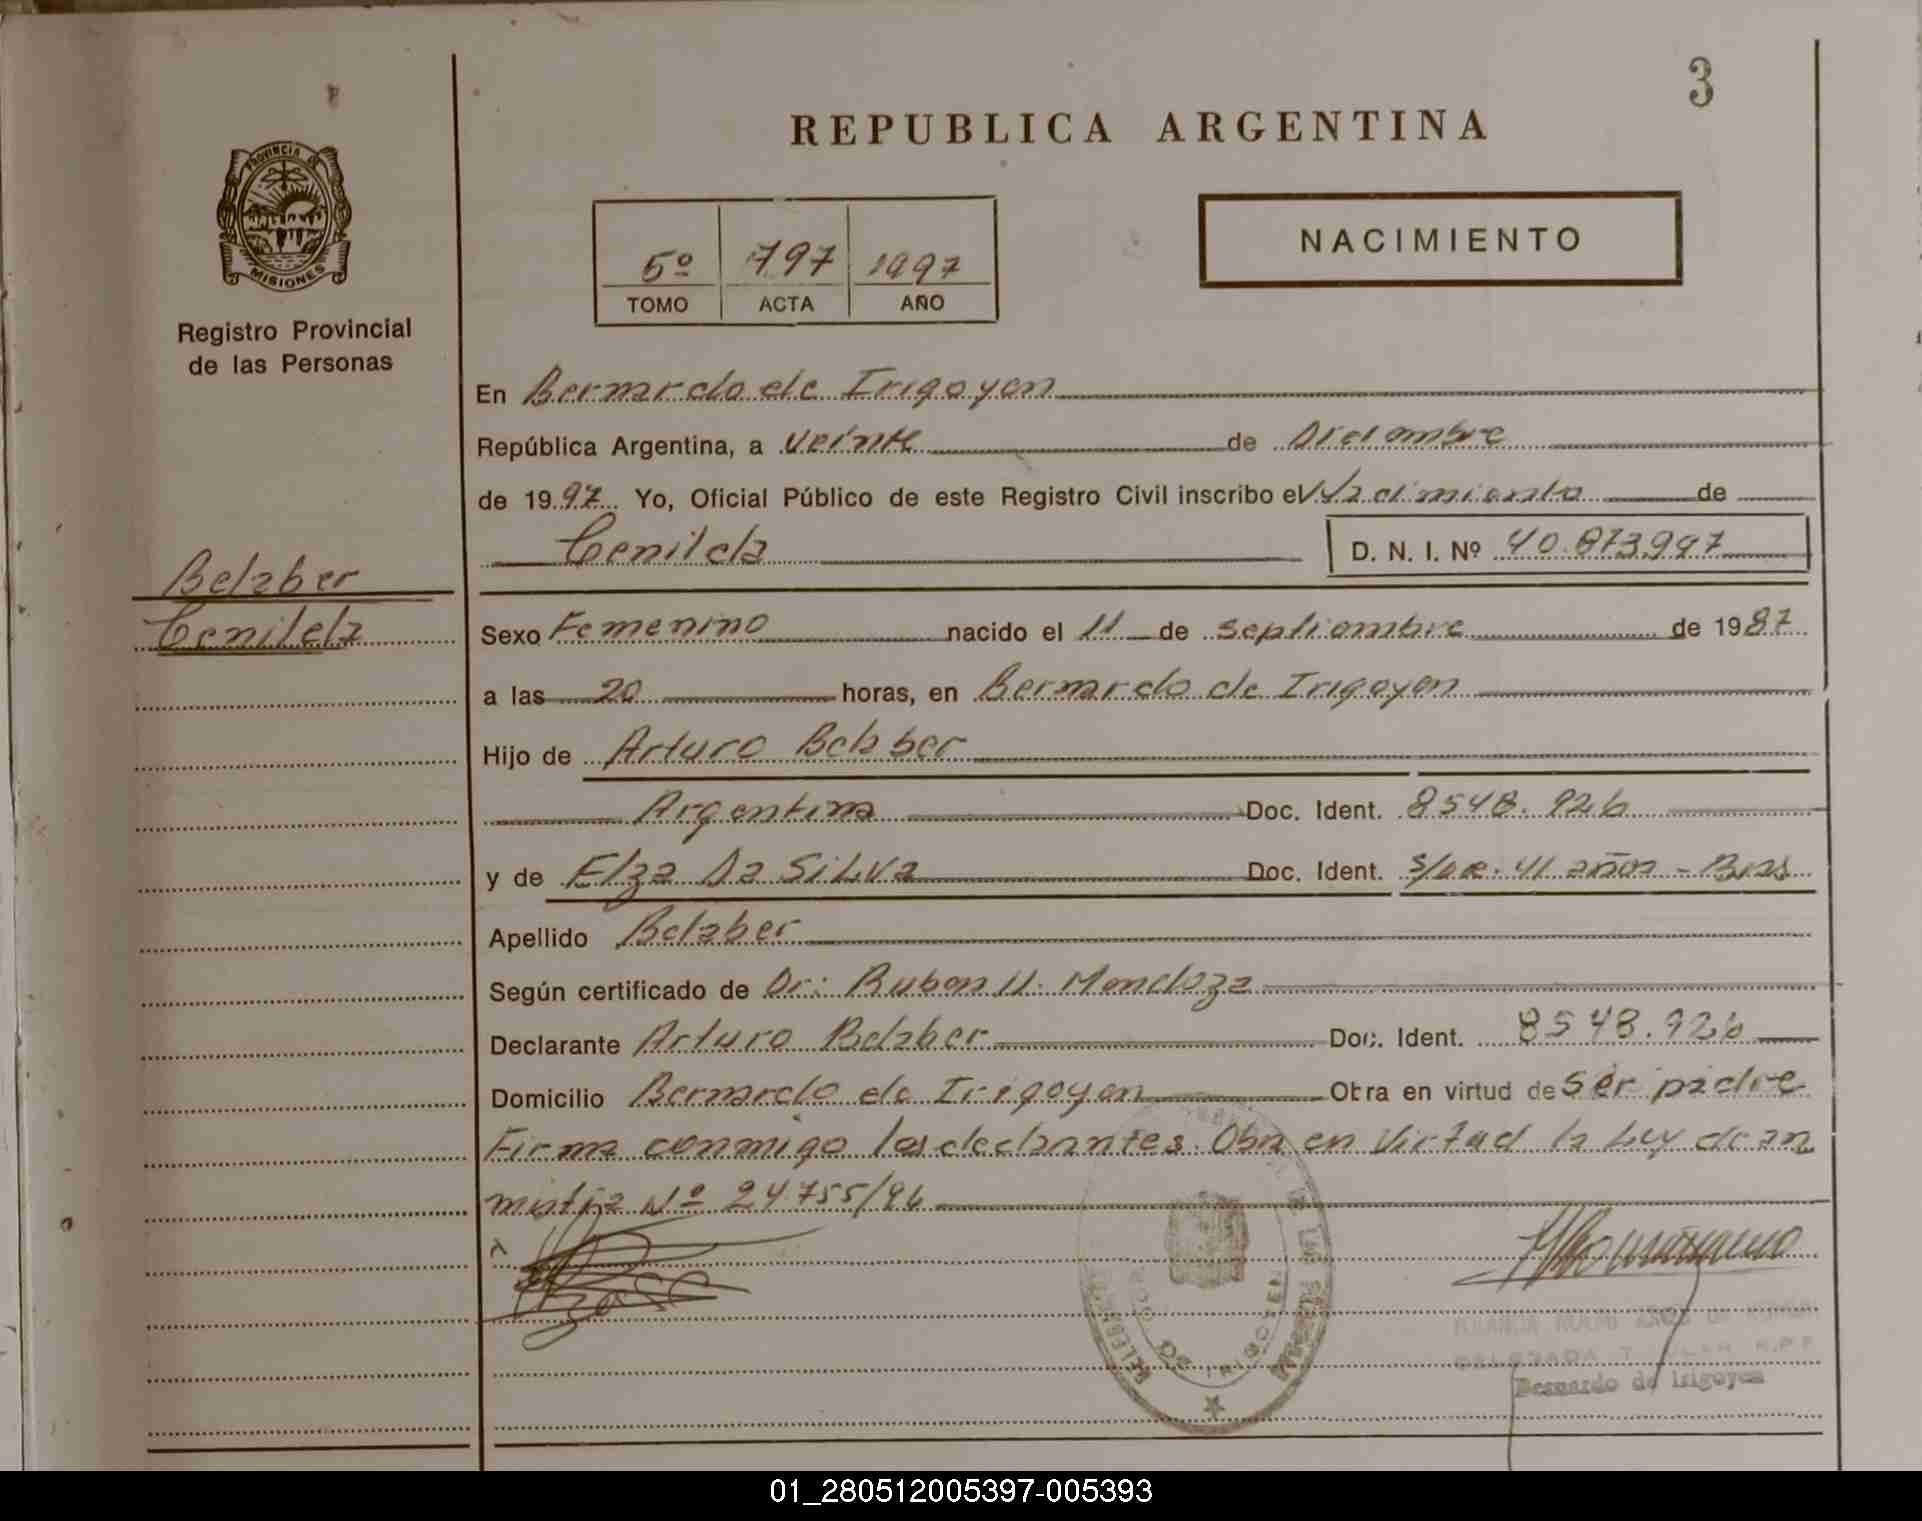 3
REPUBLICA ARGENTINA
PROVINCIA DE
MISIONES
Registro Provincial
de las Personas
5º 797 1997
TOMO ACTA AÑO
NACIMIENTO
En Bernardo de Irigoyen
República Argentina, a veinte de Diciembre
de 1997. Yo, Oficial Público de este Registro Civil inscribo el Nacimiento de
Cenilda D. N. I. Nº 40.873.997
Belaber
Cenilda
Sexo Femenino nacido el 11 de septiembre de 1987
a las 20 horas, en Bernardo de Irigoyen
Hijo de Arturo Belaber
Argentina Doc. Ident. 8548.926
y de Elza Da Silva Doc. Ident. 41 años - Bras
Apellido Belaber
Según certificado de Dr: Ruben U. Mendoza
Declarante Arturo Belaber Doc. Ident. 8548.926
Domicilio Bernardo de Irigoyen Obra en virtud de ser padre
Firma conmigo los declarantes. Obra en Virtud la Ley de am
nistia Nº 24.755/96
Bernardo de Irigoyen
01_280512005397-005393